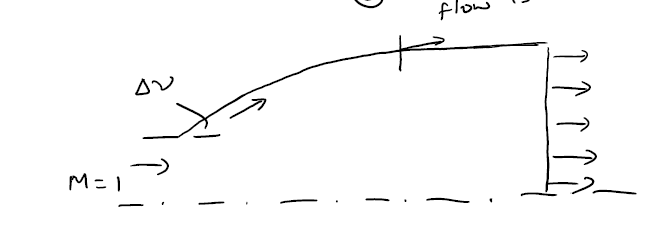 flow
Δν
M = 1